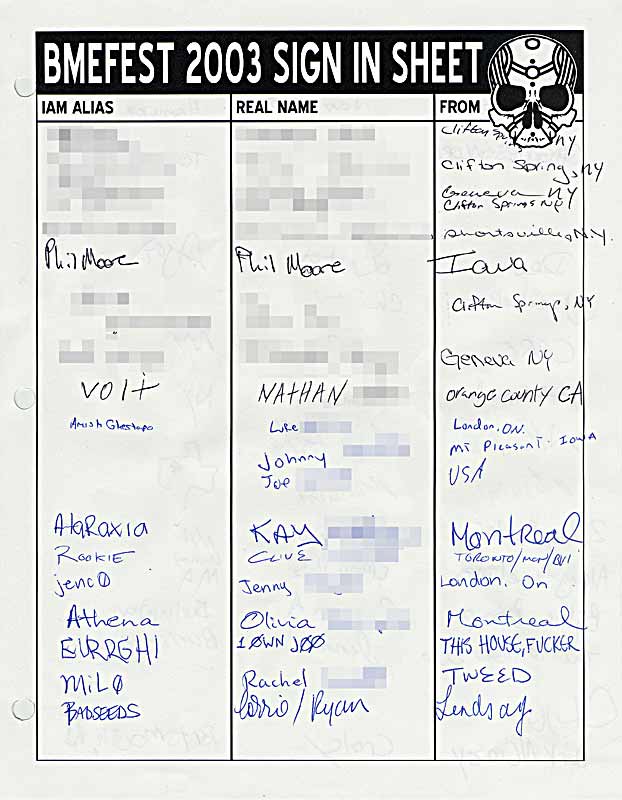 BMEFEST 2003 SIGN IN SHEET
IAM ALIAS REAL NAME FROM
Clifton NY
Clifton Spring, NY
Geneva NY
Clifton Springs NY
Shortsville, N.Y.
Phil Moore Phil Moore Iowa
Clifton Springs, NY
Geneva NY
VOLT NATHAN orange county CA
Amish Ghestapo Luke London, ON.
Johnny Mt Pleasant. Iowa
Joe USA
Ataraxia KAY Montreal
ROOKIE CLIVE TORONTO/
jenc0 Jenny London. On
Athena Olivia Montreal
EURRGH! 1 0WN J00 THIS HOUSE, FUCKER
MiLO Rachel TWEED
BADSEEDS Corrie/Ryan Lindsay